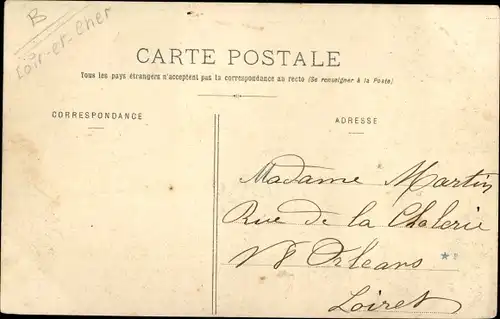 B
Loir-et-Cher
CARTE POSTALE
Tous les pays étrangers n'acceptent pas la correspondance au recto (Se renseigner à la Poste)
CORRESPONDANCE
ADRESSE
Madame Martin
Rue de la Cholerie
Orléans
Loiret